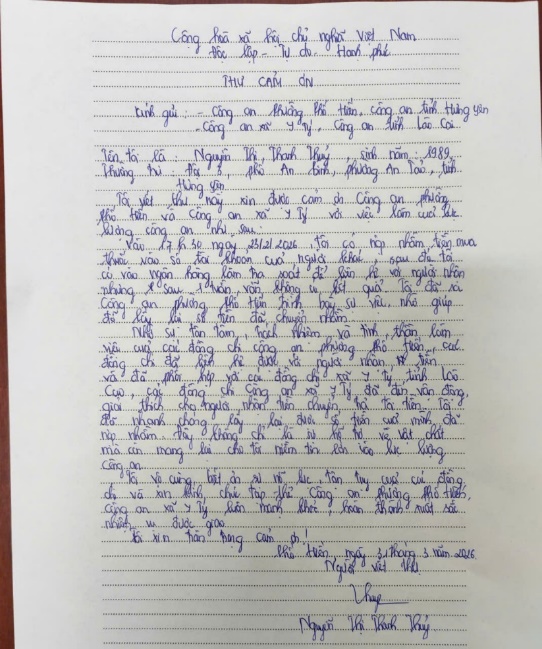 Cộng hoà xã hội chủ nghĩa Việt Nam
Độc lập - Tự do - Hạnh phúc
THƯ CẢM ƠN
Kính gửi: - Công an phường Phố Hiến, công an tỉnh Hưng Yên
- Công an xã Y Tý, Công an tỉnh Lào Cai
Tên tôi là: Nguyễn Thị Thanh Thuỷ, sinh năm: 1989
Thường trú: Đội 3, phố An Bình, phường An Tảo, tỉnh
Hưng Yên
Tôi viết thư này xin được cảm ơn Công an phường
Phố Hiến và Công an xã Y Tý với việc làm của lực
lượng công an như sau:
Vào 17h30 ngày 23/2/2026 Tôi có nộp nhầm tiền mua
thuốc vào số tài khoản của người khác, sau đó tôi
có vào ngân hàng làm tra soát để liên hệ với người nhận
nhưng 1 sau 1 tuần vẫn không có kết quả. Tôi đã ra
Công an phường Phố Hiến trình bày sự việc, nhờ giúp
đỡ lấy lại số tiền đã chuyển nhầm.
Nhờ sự tận tâm, trách nhiệm và tinh thần làm
việc của các đồng chí công an phường Phố Hiến, các
đồng chí đã liên hệ được với người nhận tiền
và đã phối hợp với các đồng chí xã Y Tý tỉnh Lào
Cai, các đồng chí Công an xã Y Tý đã đến vận động,
giải thích cho người nhận tiền chuyển trả tôi tiền. Tôi
đã nhanh chóng lấy lại được số tiền của mình đã
nộp nhầm. Đây không chỉ là sự hỗ trợ về vật chất
mà còn mang lại cho tôi niềm tin lớn vào lực lượng
Công an.
Tôi vô cùng biết ơn sự nỗ lực, tận tuỵ của các đồng
chí và xin kính chúc tập thể Công an phường Phố Hiến,
Công an xã Y Tý luôn mạnh khoẻ, hoàn thành xuất sắc
nhiệm vụ được giao.
Tôi xin trân trọng cảm ơn!
Phố Hiến, ngày 3 tháng 3 năm 2026
Người viết thư
Thuỷ
Nguyễn Thị Thanh Thuỷ